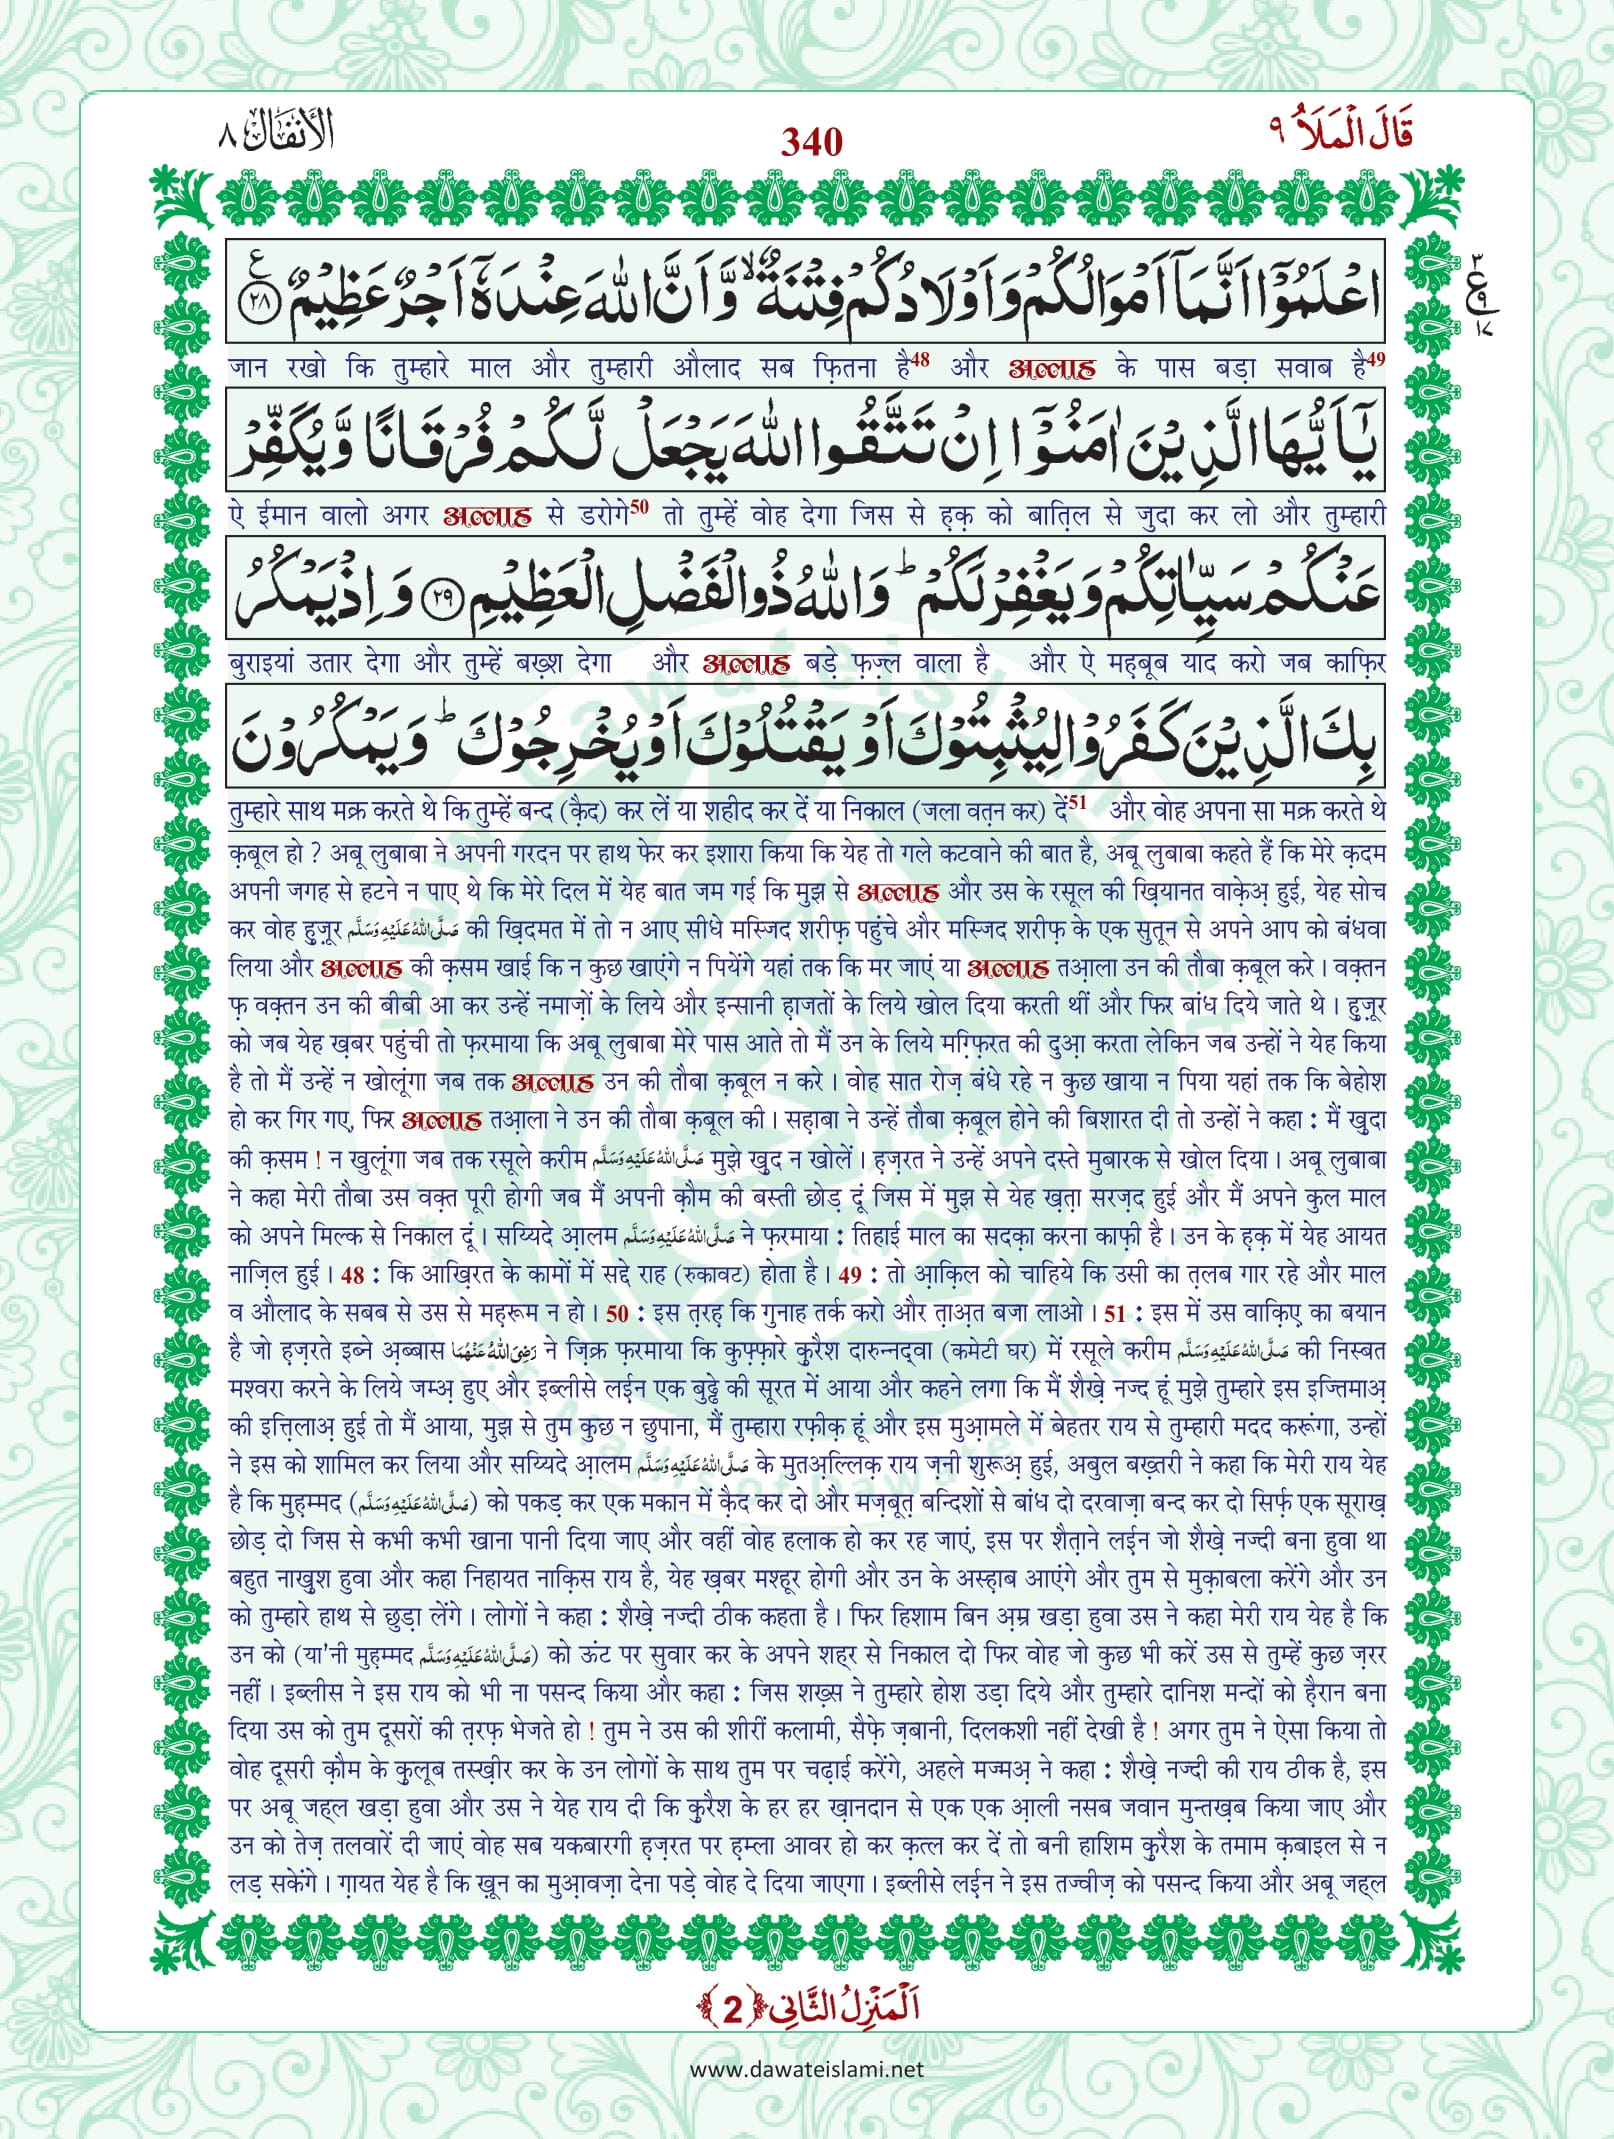 قَالَ الْمَلَاُ ٩
340
الأَنْفَال ٨
اعْلَمُوْۤا اَنَّمَاۤ اَمْوَالُكُمْ وَ اَوْلَادُكُمْ فِتْنَةٌ ۙ وَّ اَنَّ اللّٰهَ عِنْدَهٗۤ اَجْرٌ عَظِیْمٌ ﴿٢٨﴾ ع
٣ ع ٩ ١٧
जान रखो कि तुम्हारे माल और तुम्हारी औलाद सब फ़ितना है48 और अल्लाह के पास बड़ा सवाब है49
یٰۤاَیُّهَا الَّذِیْنَ اٰمَنُوْۤا اِنْ تَتَّقُوا اللّٰهَ یَجْعَلْ لَّكُمْ فُرْقَانًا وَّ یُكَفِّرْ
ऐ ईमान वालो अगर अल्लाह से डरोगे50 तो तुम्हें वोह देगा जिस से ह़क़ को बात़िल से जुदा कर लो और तुम्हारी
عَنْكُمْ سَیِّاٰتِكُمْ وَ یَغْفِرْ لَكُمْ ؕ وَ اللّٰهُ ذُو الْفَضْلِ الْعَظِیْمِ ﴿٢٩﴾ وَ اِذْ یَمْكُرُ
बुराइयां उतार देगा और तुम्हें बख़्श देगा और अल्लाह बड़े फ़ज़्ल वाला है और ऐ मह़बूब याद करो जब काफ़िर
بِكَ الَّذِیْنَ كَفَرُوْا لِیُثْبِتُوْكَ اَوْ یَقْتُلُوْكَ اَوْ یُخْرِجُوْكَ ؕ وَ یَمْكُرُوْنَ
तुम्हारे साथ मक्र करते थे कि तुम्हें बन्द (क़ैद) कर लें या शहीद कर दें या निकाल (जला वत़न कर) दें51 और वोह अपना सा मक्र करते थे
क़बूल हो ? अबू लुबाबा ने अपनी गरदन पर हाथ फेर कर इशारा किया कि येह तो गले कटवाने की बात है, अबू लुबाबा कहते हैं कि मेरे क़दम
अपनी जगह से हटने न पाए थे कि मेरे दिल में येह बात जम गई कि मुझ से अल्लाह और उस के रसूल की ख़ियानत वाक़ेअ़ हुई, येह सोच
कर वोह हुज़ूर صَلَّى اللّٰهُ عَلَيْهِ وَسَلَّم की ख़िदमत में तो न आए सीधे मस्जिद शरीफ़ पहुंचे और मस्जिद शरीफ़ के एक सुतून से अपने आप को बंधवा
लिया और अल्लाह की क़सम खाई कि न कुछ खाएंगे न पियेंगे यहां तक कि मर जाएं या अल्लाह तआ़ला उन की तौबा क़बूल करे । वक़्तन
फ़ वक़्तन उन की बीबी आ कर उन्हें नमाज़ों के लिये और इन्सानी ह़ाजतों के लिये खोल दिया करती थीं और फिर बांध दिये जाते थे । हुज़ूर
को जब येह ख़बर पहुंची तो फ़रमाया कि अबू लुबाबा मेरे पास आते तो मैं उन के लिये मग़्फ़िरत की दुआ़ करता लेकिन जब उन्हों ने येह किया
है तो मैं उन्हें न खोलूंगा जब तक अल्लाह उन की तौबा क़बूल न करे । वोह सात रोज़ बंधे रहे न कुछ खाया न पिया यहां तक कि बेहोश
हो कर गिर गए, फिर अल्लाह तआ़ला ने उन की तौबा क़बूल की । सह़ाबा ने उन्हें तौबा क़बूल होने की बिशारत दी तो उन्हों ने कहा : मैं ख़ुदा
की क़सम ! न खुलूंगा जब तक रसूले करीम صَلَّى اللّٰهُ عَلَيْهِ وَسَلَّم मुझे ख़ुद न खोलें । ह़ज़रत ने उन्हें अपने दस्ते मुबारक से खोल दिया । अबू लुबाबा
ने कहा मेरी तौबा उस वक़्त पूरी होगी जब मैं अपनी क़ौम की बस्ती छोड़ दूं जिस में मुझ से येह ख़त़ा सरज़द हुई और मैं अपने कुल माल
को अपने मिल्क से निकाल दूं । सय्यिदे आ़लम صَلَّى اللّٰهُ عَلَيْهِ وَسَلَّم ने फ़रमाया : तिहाई माल का सदक़ा करना काफ़ी है । उन के ह़क़ में येह आयत
नाज़िल हुई । 48 : कि आख़िरत के कामों में सद्दे राह (रुकावट) होता है । 49 : तो आ़क़िल को चाहिये कि उसी का त़लब गार रहे और माल
व औलाद के सबब से उस से महरूम न हो । 50 : इस त़रह़ कि गुनाह तर्क करो और त़ाअ़त बजा लाओ । 51 : इस में उस वाक़िए का बयान
है जो ह़ज़रते इब्ने अ़ब्बास رَضِىَ اللّٰهُ عَنْهُمَا ने ज़िक्र फ़रमाया कि कुफ़्फ़ारे क़ुरैश दारुन्नद्वा (कमेटी घर) में रसूले करीम صَلَّى اللّٰهُ عَلَيْهِ وَسَلَّم की निस्बत
मश्वरा करने के लिये जम्अ़ हुए और इब्लीसे लईन एक बुढ्ढे की सूरत में आया और कहने लगा कि मैं शैख़े नज्द हूं मुझे तुम्हारे इस इज्तिमाअ़
की इत्त़िलाअ़ हुई तो मैं आया, मुझ से तुम कुछ न छुपाना, मैं तुम्हारा रफ़ीक़ हूं और इस मुआ़मले में बेहतर राय से तुम्हारी मदद करूंगा, उन्हों
ने इस को शामिल कर लिया और सय्यिदे आ़लम صَلَّى اللّٰهُ عَلَيْهِ وَسَلَّم के मुतअ़ल्लिक़ राय ज़नी शुरूअ़ हुई, अबुल बख़्तरी ने कहा कि मेरी राय येह
है कि मुह़म्मद (صَلَّى اللّٰهُ عَلَيْهِ وَسَلَّم) को पकड़ कर एक मकान में क़ैद कर दो और मज़बूत़ बन्दिशों से बांध दो दरवाज़ा बन्द कर दो सिर्फ़ एक सूराख़
छोड़ दो जिस से कभी कभी खाना पानी दिया जाए और वहीं वोह हलाक हो कर रह जाएं, इस पर शैत़ाने लईन जो शैख़े नज्दी बना हुवा था
बहुत नाख़ुश हुवा और कहा निहायत नाक़िस राय है, येह ख़बर मश्हूर होगी और उन के अस्ह़ाब आएंगे और तुम से मुक़ाबला करेंगे और उन
को तुम्हारे हाथ से छुड़ा लेंगे । लोगों ने कहा : शैख़े नज्दी ठीक कहता है । फिर हिशाम बिन अ़म्र खड़ा हुवा उस ने कहा मेरी राय येह है कि
उन को (या'नी मुह़म्मद صَلَّى اللّٰهُ عَلَيْهِ وَسَلَّم) को ऊंट पर सुवार कर के अपने शह्र से निकाल दो फिर वोह जो कुछ भी करें उस से तुम्हें कुछ ज़रर
नहीं । इब्लीस ने इस राय को भी ना पसन्द किया और कहा : जिस शख़्स ने तुम्हारे होश उड़ा दिये और तुम्हारे दानिश मन्दों को ह़ैरान बना
दिया उस को तुम दूसरों की त़रफ़ भेजते हो ! तुम ने उस की शीरीं कलामी, सैफ़े ज़बानी, दिलकशी नहीं देखी है ! अगर तुम ने ऐसा किया तो
वोह दूसरी क़ौम के क़ुलूब तस्ख़ीर कर के उन लोगों के साथ तुम पर चढ़ाई करेंगे, अहले मज्मअ़ ने कहा : शैख़े नज्दी की राय ठीक है, इस
पर अबू जह्ल खड़ा हुवा और उस ने येह राय दी कि क़ुरैश के हर हर ख़ानदान से एक एक आ़ली नसब जवान मुन्तख़ब किया जाए और
उन को तेज़ तलवारें दी जाएं वोह सब यकबारगी ह़ज़रत पर ह़म्ला आवर हो कर क़त्ल कर दें तो बनी हाशिम क़ुरैश के तमाम क़बाइल से न
लड़ सकेंगे । ग़ायत येह है कि ख़ून का मुआ़वज़ा देना पड़े वोह दे दिया जाएगा । इब्लीसे लईन ने इस तज्वीज़ को पसन्द किया और अबू जह्ल
اَلْمَنْزِلُ الثَّانِی ﴿2﴾
www.dawateislami.net